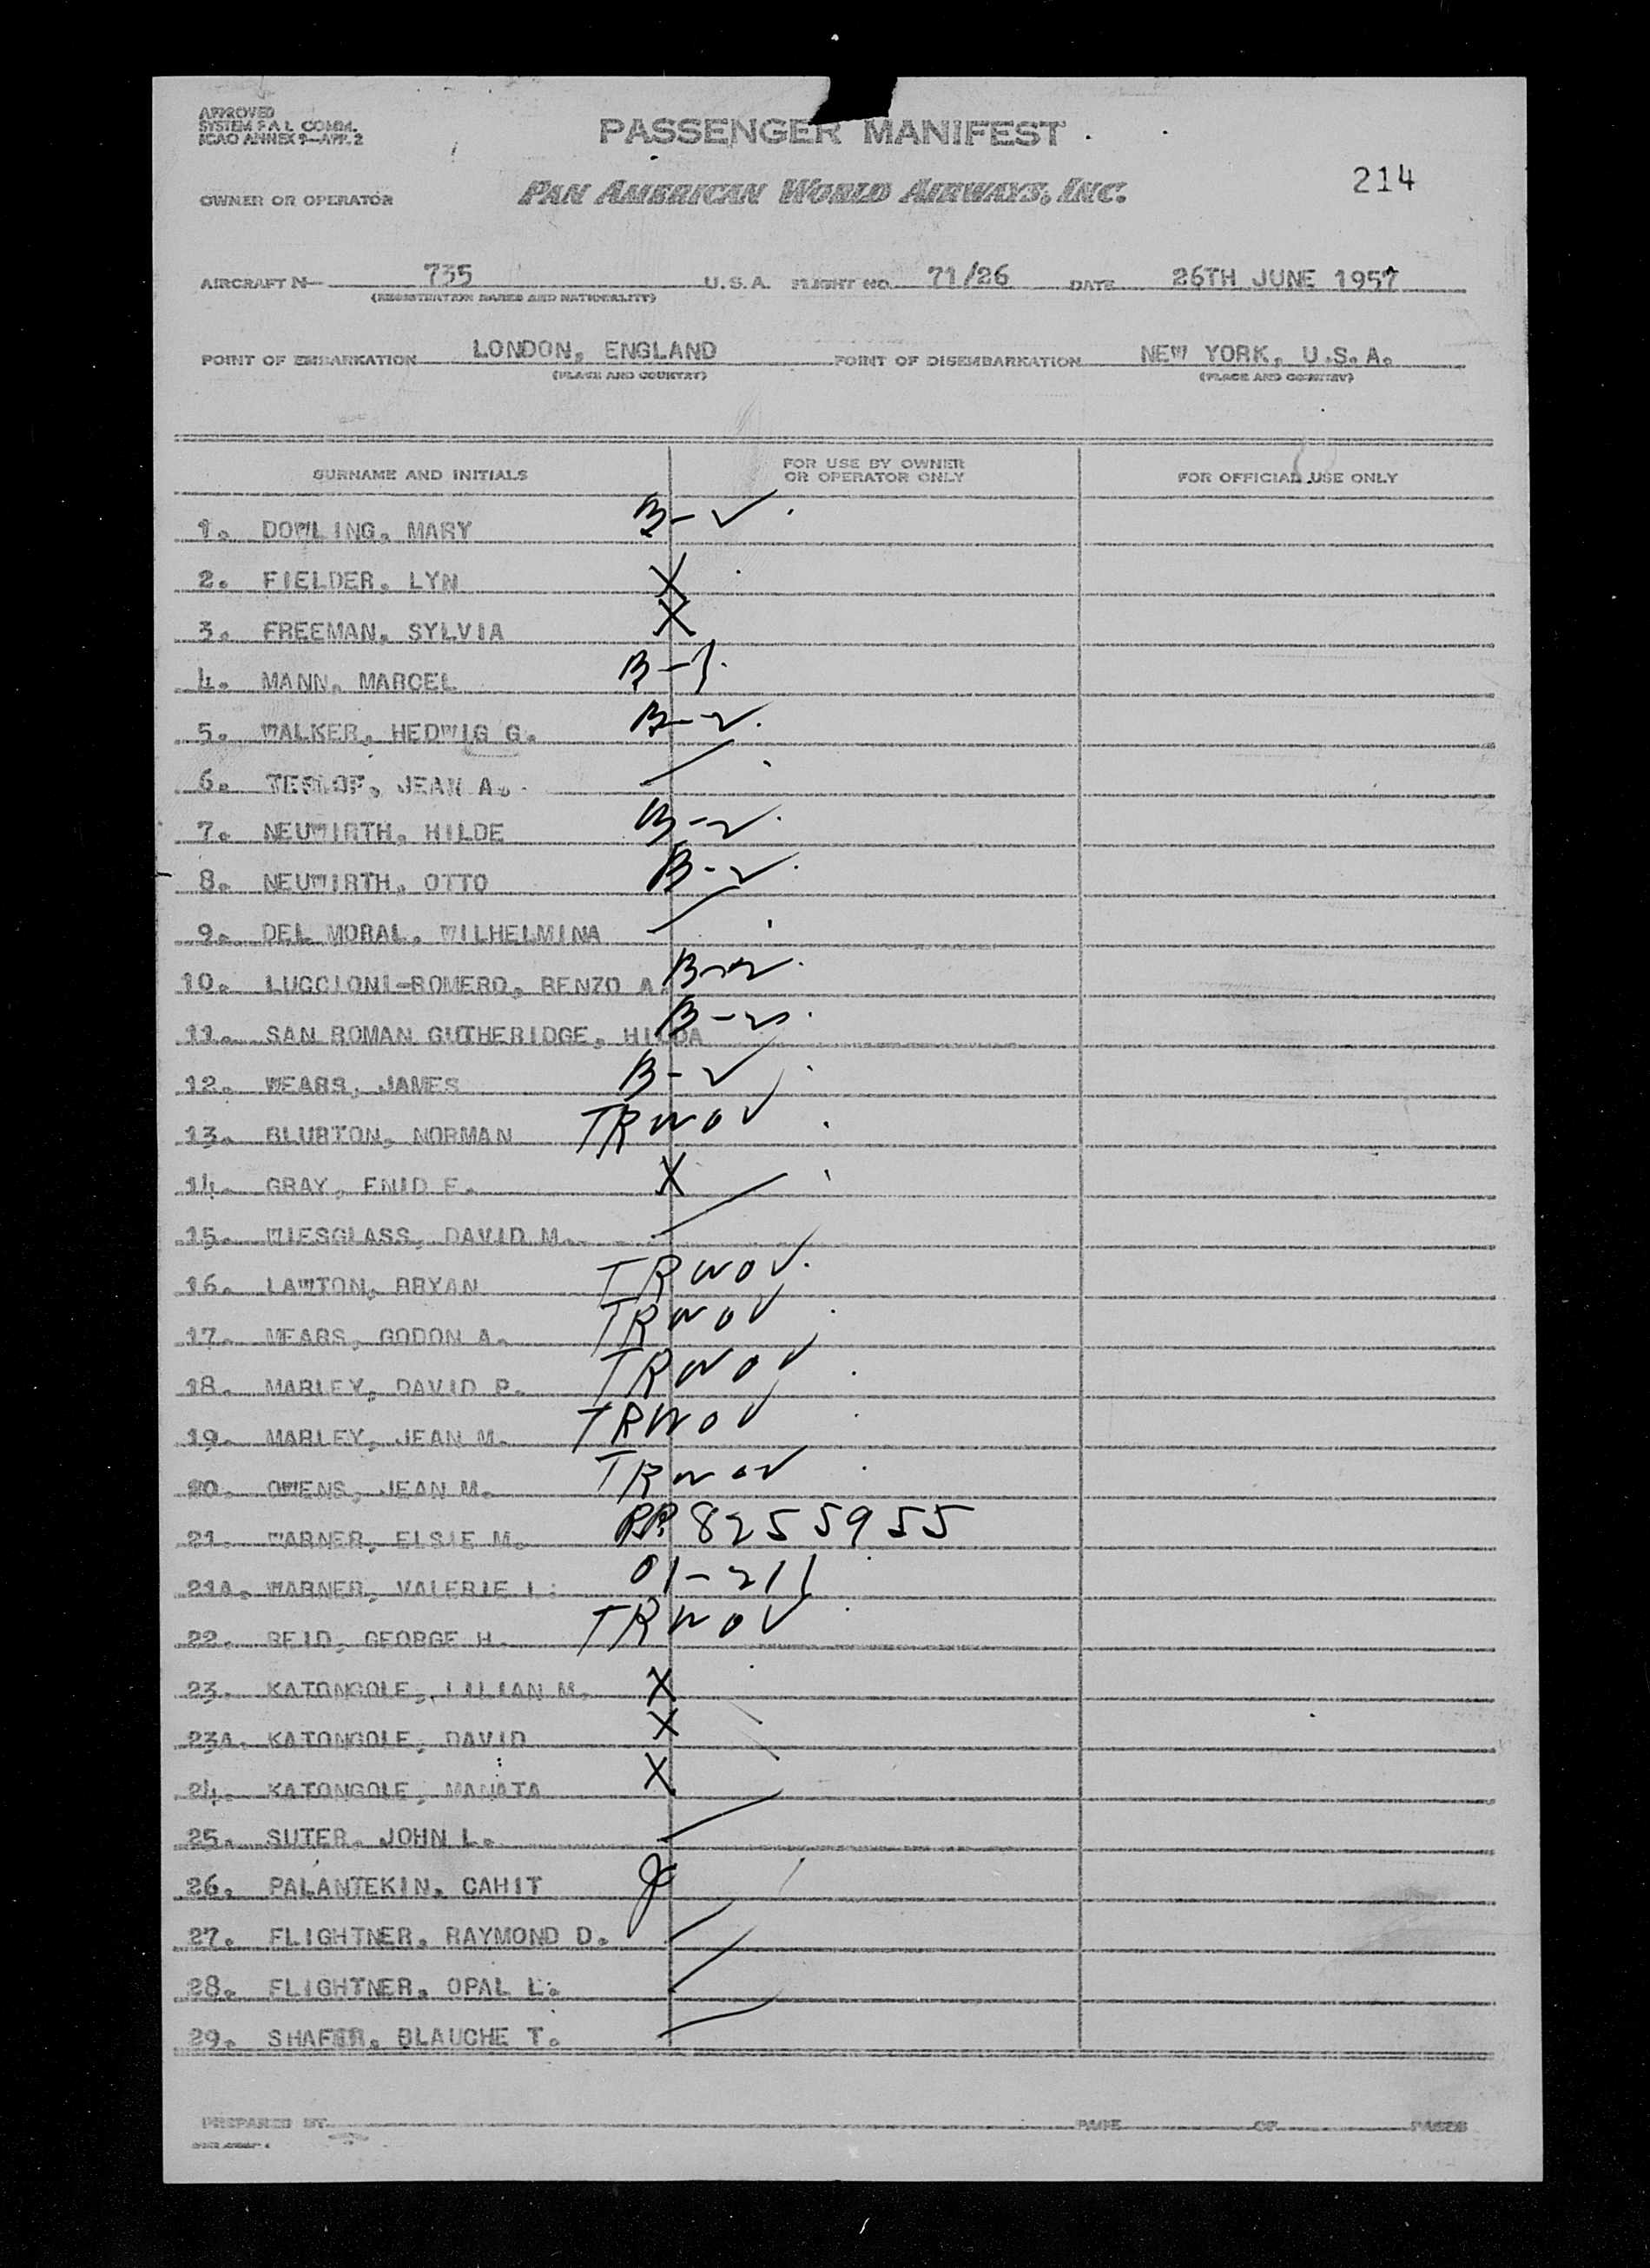 APPROVED
SYSTEM F A L COMM.
ICAO ANNEX 9—APP. 2
PASSENGER MANIFEST
214
OWNER OR OPERATOR
PAN AMERICAN WORLD AIRWAYS, INC.
AIRCRAFT N— 735 U. S. A. FLIGHT NO. 71/26 DATE 26TH JUNE 1957
(REGISTRATION MARKS AND NATIONALITY)
POINT OF EMBARKATION LONDON, ENGLAND POINT OF DISEMBARKATION NEW YORK, U.S.A.
(PLACE AND COUNTRY) (PLACE AND COUNTRY)
SURNAME AND INITIALS FOR USE BY OWNER OR OPERATOR ONLY FOR OFFICIAL USE ONLY
1. DOWLING, MARY B-✓
2. FIELDER, LYN X
3. FREEMAN, SYLVIA X
4. MANN, MARCEL B-1
5. WALKER, HEDWIG G. B-2
6. JEAN A.
7. NEUWIRTH, HILDE B-2
8. NEUWIRTH, OTTO B-2
9. DEL MORAL, WILHELMINA
10. LUCCIONI-ROMERO, RENZO A. B-2
11. SAN ROMAN GUTHERIDGE, HILDA B-2
12. WEARS, JAMES B-✓
13. BLURTON, NORMAN TRWOV
14. GRAY, ENID E. X
15. WIESGLASS, DAVID M.
16. LAWTON, BRYAN TRWOV
17. MEARS, GODON A. TRWOV
18. MARLEY, DAVID P. TRWOV
19. MARLEY, JEAN M. TRWOV
20. OWENS, JEAN M. TRWOV
21. WARNER, ELSIE M. PP. 8255955
21A. WARNER, VALERIE L. 01-211
22. REID, GEORGE H. TRWOV
23. KATONGOLE, LILIAN M. X
23A. KATONGOLE, DAVID X
24. KATONGOLE, MANATA X
25. SUTER, JOHN L.
26. PALANTEKIN, CAHIT
27. FLIGHTNER, RAYMOND D.
28. FLIGHTNER, OPAL L.
29. SHAFER, BLAUCHE T.
PREPARED BY PAGE OF PAGES